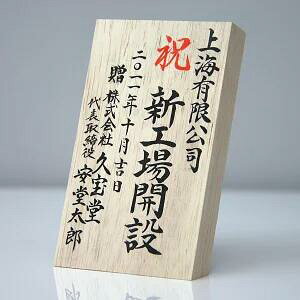 上海有限公司
祝
新工場開設
二〇一一年十月吉日
贈
株式会社 久宝堂
代表取締役 安堂太郎